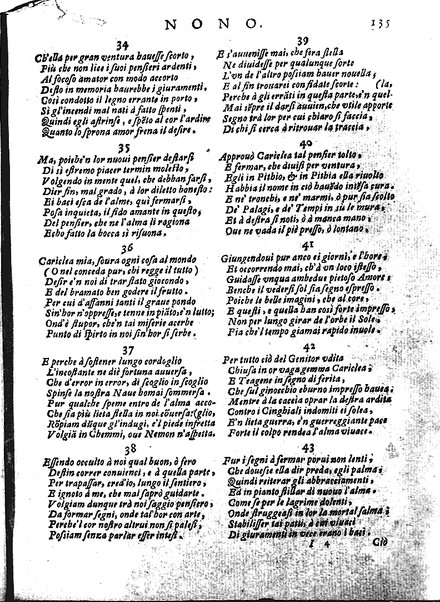 NONO. 135
34
Ch'ella per gran ventura hauesse scorto,
Più che non lice i suoi pensieri ardenti,
Al focoso amator con modo accorto
Desto in memoria haurebbe i giuramenti.
Così condotto il legno errante in porto,
Sì gl'incendi mal nati à fatto spenti,
Quindi egli astrinse, e spéto al cor l'ardire
Quanto lo sprona amor frena il desire.
35
Ma, poiche'n lor nuoui pensier destarsi
Di sì estremo piacer termin molesto,
Volgendo in mente quel, che debban farsi,
Dir fin, mal grado, à lor diletto honesto:
Ei baci esca de l'alme, qui fermarsi,
Posa inquieta, il fido amante in questo,
Del pensier, che ne l'alma si ragiona
Echo fatta la bocca ti risuona.
36
Cariclea mia, soura ogni cosa al mondo
(O nel conceda pur, chi regge il tutto)
Desir e'n noi di trarsi allo giocondo,
E del bramato ben godere il frutto.
Per cui d'affanni tanti il graue pondo
Sin'hor n'oppresse, e tenne in piãto, e'n lutto;
Ond'è stupor, che'n tai miserie acerbe
Punto di spirto in noi sin'hor si serbe.
37
E perche à sostener lungo cordoglio
L'incostante ne diè fortuna auuersa,
Che d'error in error, di scoglio in scoglio
Spinse la nostra Naue homai sommersa.
Pur qualche speme entro de l'alma acco-
Che sia più lieta stella in noi cõuersa: (glio,
Rõpiam dũque gl'indugi, e'l piede infretta
Volgiã in Chemmi, oue Nemon n'aspetta.
38
Essendo occulto à noi qual buon, ò fero
Destin correr conuienci, e à quella parte,
Per trapassar, cred'io, lungo il sentiero,
E ignoto à me, che mal saprò guidarte.
Volgiam dunque trà noi saggio pensiero,
Da formar segni, onde tal'hor con arte,
Perche'l cor nostro altrui non si palesi,
Possiam senza parlar esser intesi.
39
E s'auuenisse mai, che fera stella
Ne diuidesse per qualunque sorte
L'vn de l'altro possiam hauer nouella;
E al fin trouarci confidate scorte: (la,
Perche à gli erráti in questa parte, e'n quel-
Mai sépre il darsi auuien, che vtile apporte
Segno trà lor per cui chiaro si faccia,
Di chi si cerca à ritrouar la traccia,
40
Approuò Cariclea tal pensier tosto,
E fermar, che diuisi per ventura,
Egli in Pithio, & in Pithia ella riuolto
Habbia il nome in ciò hauẽdo intẽsa cura.
E ne' tronchi, e ne' marmi, ò pur sia scolto
De' Palagi, e de' Tempi in sù le mura,
Et à destra si noti, ò à manca mano,
Oue ne vada il piè presto, ò lontano,
41
Giungendoui pur anco ei giorni, e l'hore;
Et occorrendo mai, ch'à vn loco istesso,
Guidasse vnqua ambedue pietoso Amore;
Benche il vedersi sol sia segno espresso.
Poiche le belle imagini, che al core,
E questi, e quella han così forte impresso,
Non per lungo girar de l'orbe il Sole
Pia che'l tempo giamai rapido inuole.
42
Per tutto ciò del Genitor vdita
Chiusa in or vaga gemma Cariclea;
E Teagene in segno di ferita,
Che sul ginocchio eburno impresso hauea;
Mentre à la caccia oprar la destra ardita
Contro i Cinghiali indomiti ei solea,
E'n lieta guerra, e'n guerreggiante pace
Forte il colpo rendea l'alma viuace.
43
Pur i segni à fermar porui non lenti,
Che douesse ella dir preda, egli palma;
Quindi reiterar gli abbracciamenti,
Ed in pianto stillar di nuouo l'alma.
Come se per le lagrime dolenti,
Onde struggeasi in lor la mortal salma;
Stabilisser tai patti, à cui viuaci
Di giuramenti in vece erano i baci.
I 4 Ciò